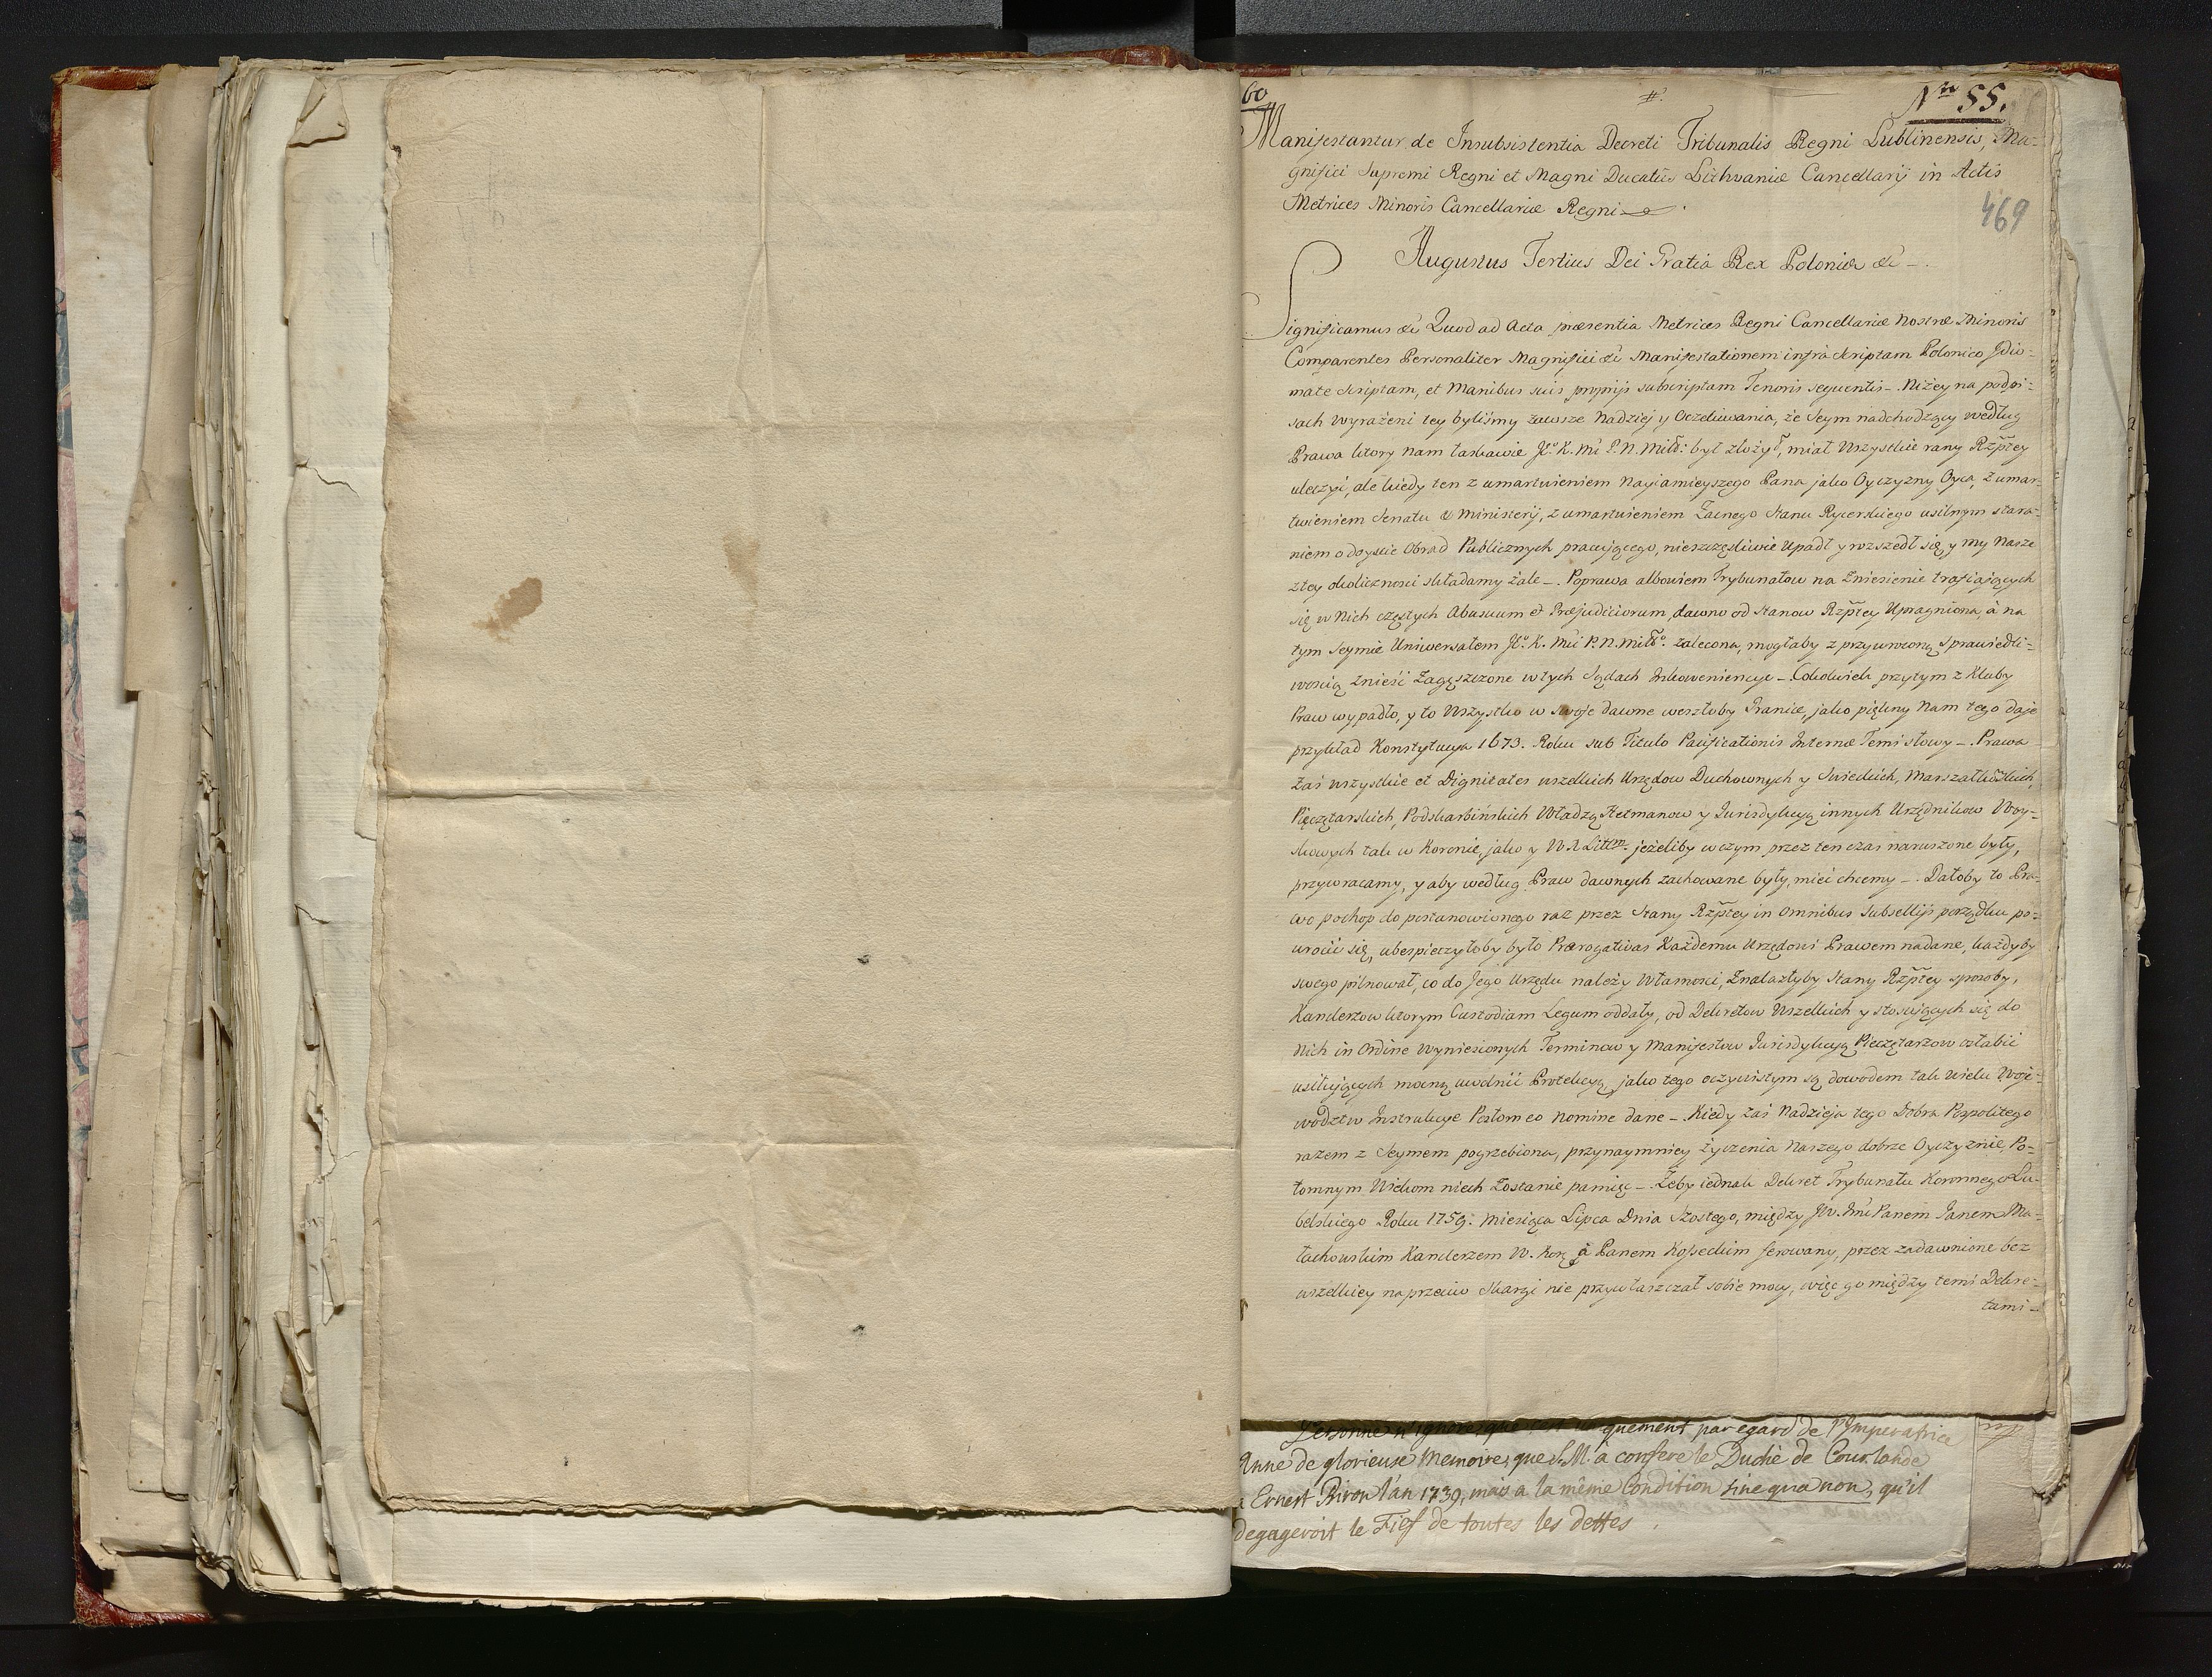 60
#.
Nro 55.
Manifestantur de Insubsistentia Decreti Tribunalis Regni Lublinensis, Ma-
gnifici Supremi Regni et Magni Ducatûs Lithvaniæ Cancellarij in Actis
Metrices Minoris Cancellariæ Regni
469
Augustus Tertius Dei Gratia Rex Poloniæ &c -.
Significamus &c Quod ad Acta præsentia Metrices Regni Cancellariæ Nostræ Minoris
Comparentes Personaliter Magnifici &c Manifestationem infrà scriptam Polonico Idio-
mate scriptam, et Manibus suis proprijs subscriptam Tenoris sequentis -. Niżey na podpi-
sach wyrażeni tey byliśmy zawsze Nadziej y Oczekiwania, że Seym nadchodzący według
Prawa ktory nam łaskawie Jº. K. Mć P. N. Miłł: był złożył, miał Wszystkie rany Rzptey
uleczyć, ale kiedy ten z umartwieniem Nayiaśnieyszego Pana jako Oyczyzny Oyca, z umar-
twieniem Senatu & Ministerij, z umartwieniem Zacnego Stanu Rycerskiego usilnym stara-
niem o doyście Obrad Publicznych pracującego, nieszczęśliwie Upadł y rozszedł się, y my Nasze
z tey okoliczności składamy żale -. Poprawa albowiem Trybunałow na Zniesienie trafiających
się w Nich częstych Abusuum et Præjudiciorum, dawno od Stanow Rzptey Upragniona, à na
tym Seymie Uniwersałem Jº. K. Mći P. N. Miłłº. zalecona, mogłaby z przywroconą Sprawiedli-
wością Znieść Zagęszczone w tych Sądach Inkoweniencye -. Cokolwiek przytym z Kluby
Praw wypadło, y to Wszystko w swoje dawne weszłoby Granice, jako piękny Nam tego daje
przykład Konstytucya 1673. Roku sub Titulo Pacificationis Internæ Temi słowy -. Prawa
Zaś wszystkie et Dignitates wszelkich Urzędow Duchownych y Swieckich, Marszałkowskich,
Pieczętarskich, Podskarbińskich Władzą Hetmanow y Jurisdykcyą innych Urzędnikow Woy-
skowych tak w Koronie, jako y W. X. Littm. jeżeliby w czym przez ten czas naruszone były,
przywracamy, y aby według Praw dawnych zachowane były, mieć chcemy -. Dałoby to Pra-
wo pochop do postanowionego raz przez Stany Rzptey in omnibus Subsellijs porządku po-
wrocić się, ubespieczyłoby było Prærogativas Każdemu Urzędowi Prawem nadane, każdyby
swego pilnował, co do Jego Urzędu należy Własności, Znalazłyby Stany Rzptey sposoby,
Kanclerzow ktorym Custodiam Legum oddały, od Dekretow Wszelkich y stosujących się do
Nich in Ordine wyniesionych Terminow y Manifestow Jurisdykcyą Pieczętarzow osłabić
usiłujących mocną uwolnić Protekcyą, jako tego oczywistym są dowodem tak wielu Woje-
wodztw Instrukcye Posłom eo Nomine dane -. Kiedy zaś Nadzieja tego Dobra Pospolitego
razem z Seymem pogrzebiona, przynaymniey życzenia Naszego dobrze Oyczyznie, Po-
tomnym Wiekom niech Zostanie pamięć -. Żeby iednak Dekret Trybunału Koronnego Lu-
belskiego Roku 1759. Miesiąca Lipca Dnia Szostego, między JW. Jmć Panem Janem Ma-
łachowskim Kanclerzem W. Kor. à Panem Kosseckim ferowany, przez zadawnione bez
wszelkiey naprzeciw Skargi nie przywłaszczał sobie mocy, więc go między temi Dekre-
tami -
Personne n'ignore que c'est quement par egard de l'Imperatrice
Anne de glorieuse Memoire, que S. M. à conferé le Duché de Courlande
à Ernest Biron l'án 1739, mais a la même Condition sine qua non, qu'il
degageroit le Fief de toutes les dettes.